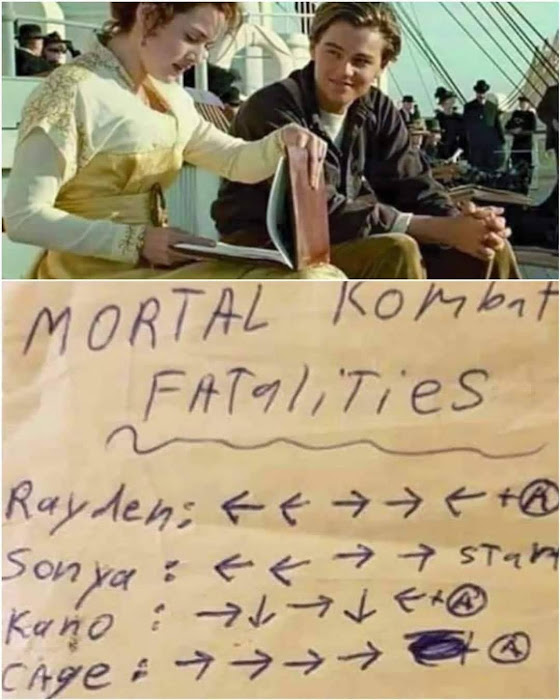 MORTAL Kombat
FATaliTies
Rayden: ← ← → → ← + Ⓐ
Sonya : ← ← → → START
Kano : → ↓ → ↓ ← + Ⓐ
CAge : → → → → + Ⓐ